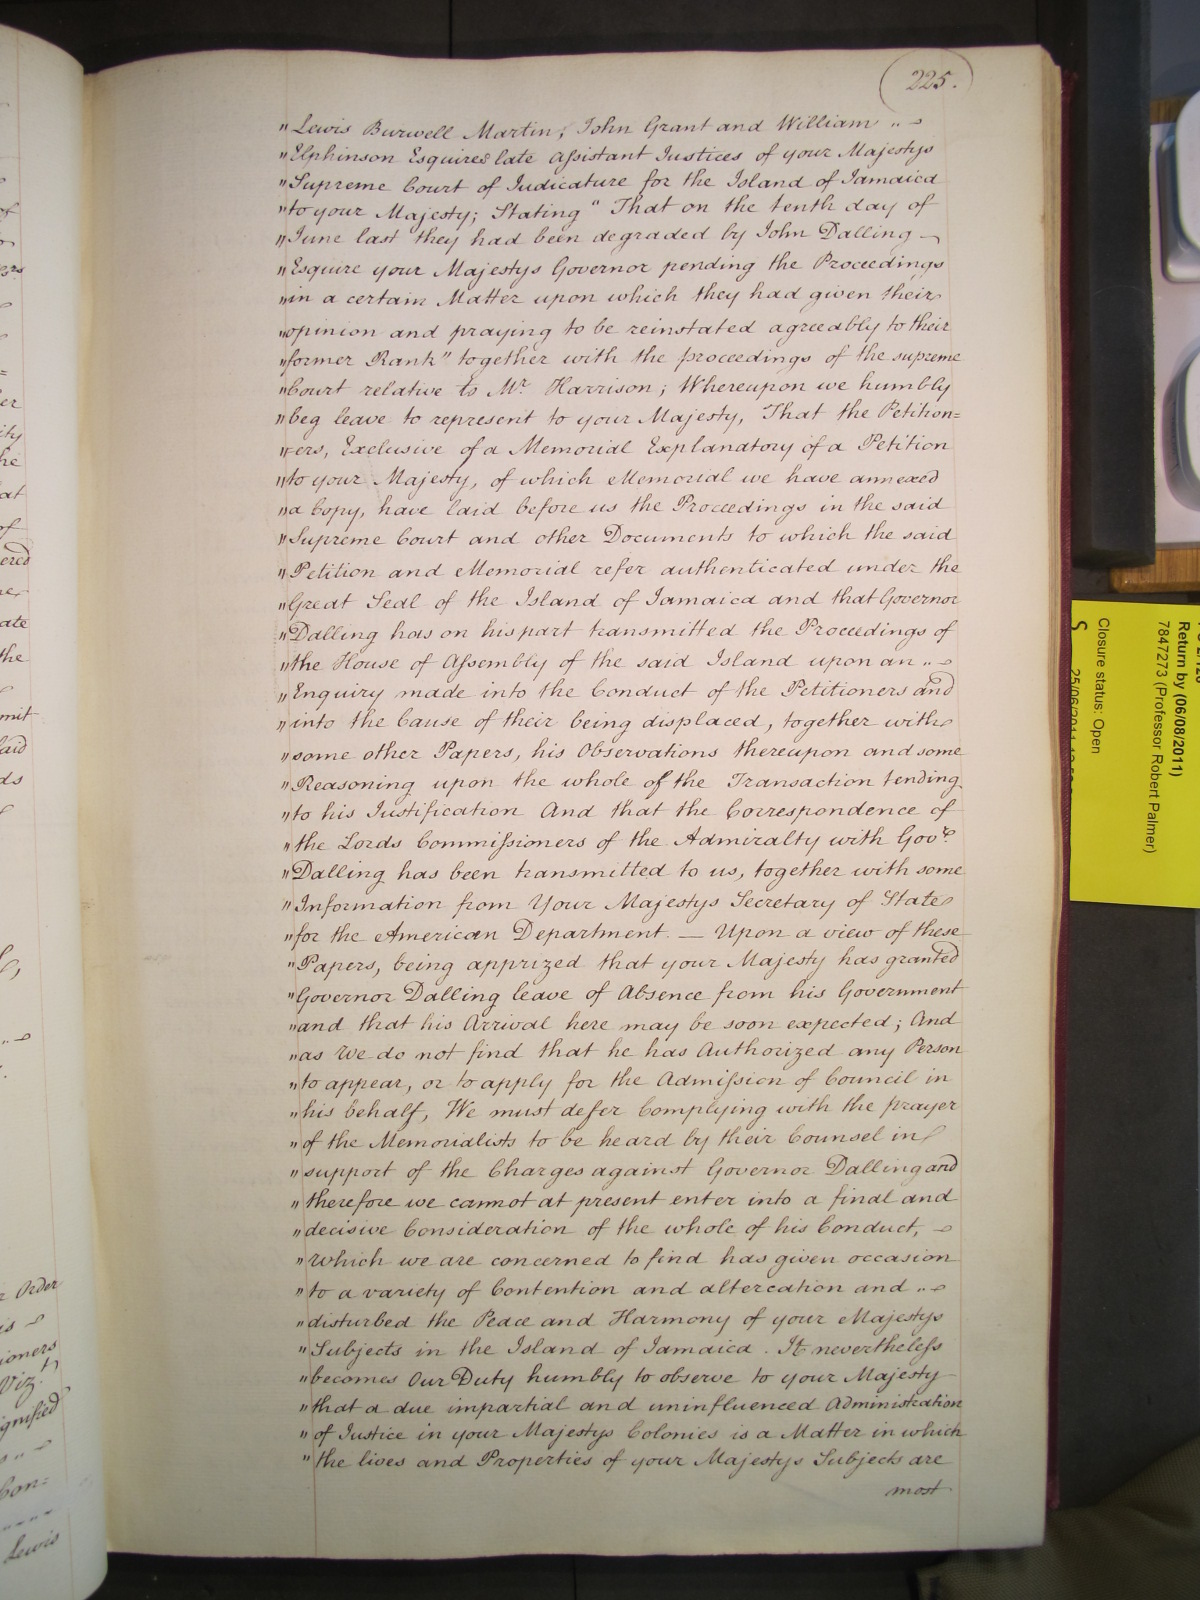 225.
"Lewis Burwell Martin, John Grant and William
"Elphinson Esquires late Assistant Justices of your Majestys
"Supreme Court of Judicature for the Island of Jamaica
"to your Majesty; Stating "That on the tenth day of
"June last they had been degraded by John Dalling
"Esquire your Majestys Governor pending the Proceedings
"in a certain Matter upon which they had given their
"opinion and praying to be reinstated agreeably to their
"former Rank" together with the proceedings of the supreme
"Court relative to Mr. Harrison; Whereupon we humbly
"beg leave to represent to your Majesty, That the Petition=
"ers, Exclusive of a Memorial Explanatory of a Petition
"to your Majesty, of which Memorial we have annexed
"a Copy, have laid before us the Proceedings in the said
"Supreme Court and other Documents to which the said
"Petition and Memorial refer authenticated under the
"Great Seal of the Island of Jamaica and that Governor
"Dalling has on his part transmitted the Proceedings of
"the House of Assembly of the said Island upon an
"Enquiry made into the Conduct of the Petitioners and
"into the Cause of their being displaced, together with
"some other Papers, his Observations thereupon and some
"Reasoning upon the whole of the Transaction tending
"to his Justification And that the Correspondence of
"the Lords Commissioners of the Admiralty with Govr.
"Dalling has been transmitted to us, together with some
"Information from Your Majestys Secretary of State
"for the American Department. — Upon a view of these
"Papers, being apprized that your Majesty has granted
"Governor Dalling leave of Absence from his Government
"and that his Arrival here may be soon expected; And
"as We do not find that he has Authorized any Person
"to appear, or to apply for the Admission of Council in
"his behalf, We must defer Complying with the prayer
"of the Memorialists to be heard by their Counsel in
"support of the Charges against Governor Dalling and
"therefore we cannot at present enter into a final and
"decisive Consideration of the whole of his Conduct,
"which we are concerned to find has given occasion
"to a variety of Contention and altercation and
"disturbed the Peace and Harmony of your Majestys
"Subjects in the Island of Jamaica. It nevertheless
"becomes Our Duty humbly to observe to your Majesty
"that a due impartial and uninfluenced Administration
"of Justice in your Majestys Colonies is a Matter in which
"the lives and Properties of your Majestys Subjects are
most
Order
Viz.
Con=
Lewis
Return by (06/08/2011)
7847273 (Professor Robert Palmer)
Closure status: Open